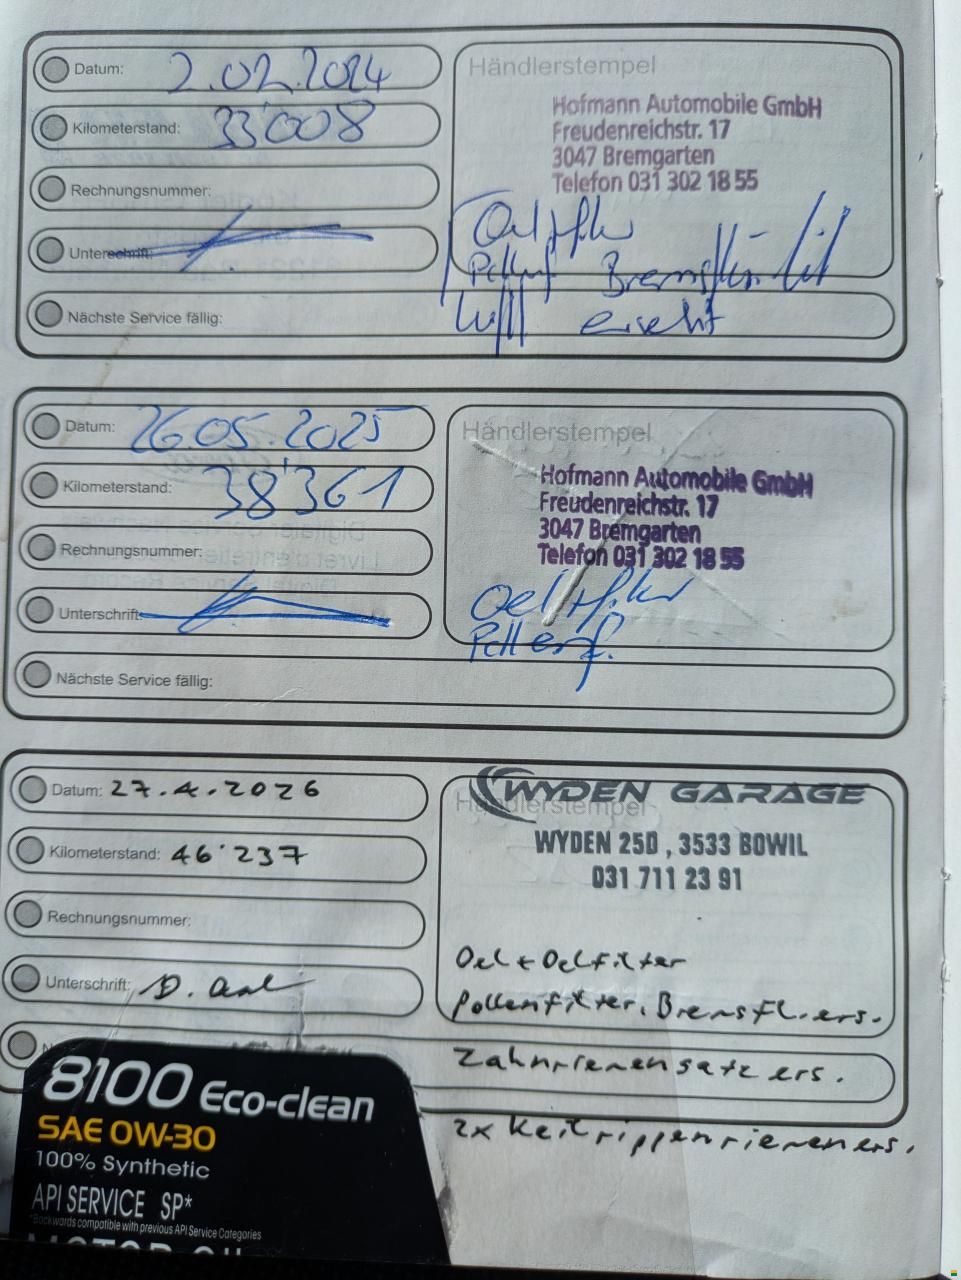 Datum: 2.02.2024
Kilometerstand: 33'008
Rechnungsnummer:
Unterschrift:
Nächste Service fällig:
Händlerstempel
Hofmann Automobile GmbH
Freudenreichstr. 17
3047 Bremgarten
Telefon 031 302 18 55
Oel + filter
Pollenf Bremsflüssigkeit
Luftf ersetzt
Datum: 26.05.2025
Kilometerstand: 38'361
Rechnungsnummer:
Unterschrift:
Nächste Service fällig:
Händlerstempel
Hofmann Automobile GmbH
Freudenreichstr. 17
3047 Bremgarten
Telefon 031 302 18 55
Oel + filter
Pollenf.
Datum: 27.4.2026
Kilometerstand: 46'237
Rechnungsnummer:
Unterschrift: D.
Händlerstempel
WYDEN GARAGE
WYDEN 25D, 3533 BOWIL
031 711 23 91
Oel + Oelfilter
Pollenfilter, Bremsfl. ers.
Zahnriemensatz ers.
2x Keilrippenriemen ers.
8100 Eco-clean
SAE 0W-30
100% Synthetic
API SERVICE SP*
*Backwards compatible with previous API Service Categories
MOTOR OIL